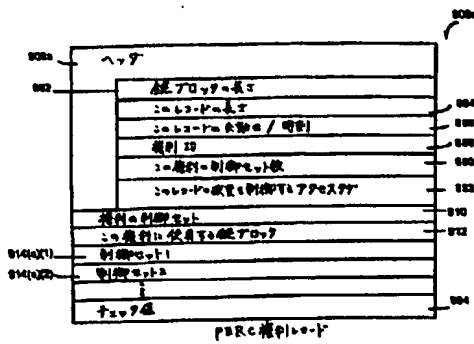 908a
908a
ヘッダ
982
鍵ブロックの長さ
このレコードの長さ
984
このレコードの失効日/時刻
986
権利ID
988
この権利の制御セット数
990
このレコードの改変を制御するアクセスタグ
992
権利の制御セット
910
この権利に使用する鍵ブロック
912
914(a)(1)
制御セット1
914(a)(2)
制御セット2
チェック値
994
PERC権利レコード